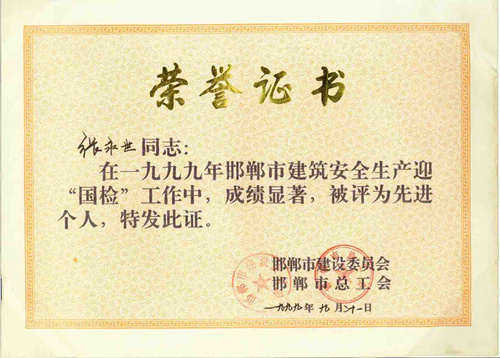 荣誉证书
张永世同志：
在一九九九年邯郸市建筑安全生产迎
“国检”工作中，成绩显著，被评为先进
个人，特发此证。
邯郸市建设委员会
邯郸市总工会
一九九九年九月二十一日